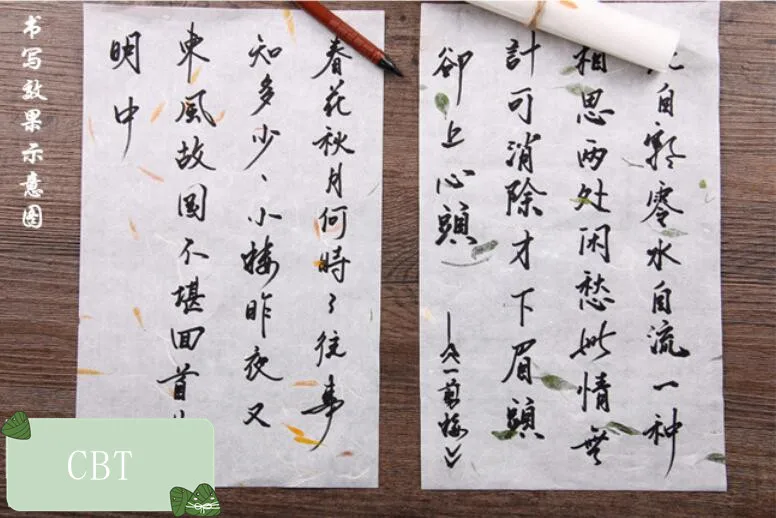 书写效果示意图
春花秋月何時了往事
知多少、小楼昨夜又
東風故国不堪回首
明中
自飘零水自流一种
相思两处闲愁此情無
計可消除才下眉頭
卻上心頭 —《一剪梅》
CBT